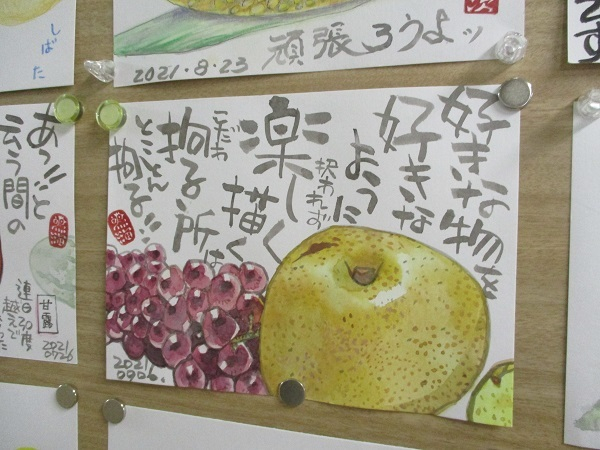 しばた
2021・8・23
頑張ろうよッ
好きな物を
好きな
ように
捉われず
楽しく
描く
こだわ
拘る所は
とことん
拘る!!
2021
0906.
あっと
云う間の
甘露
連日30度
越えで
2021
0726